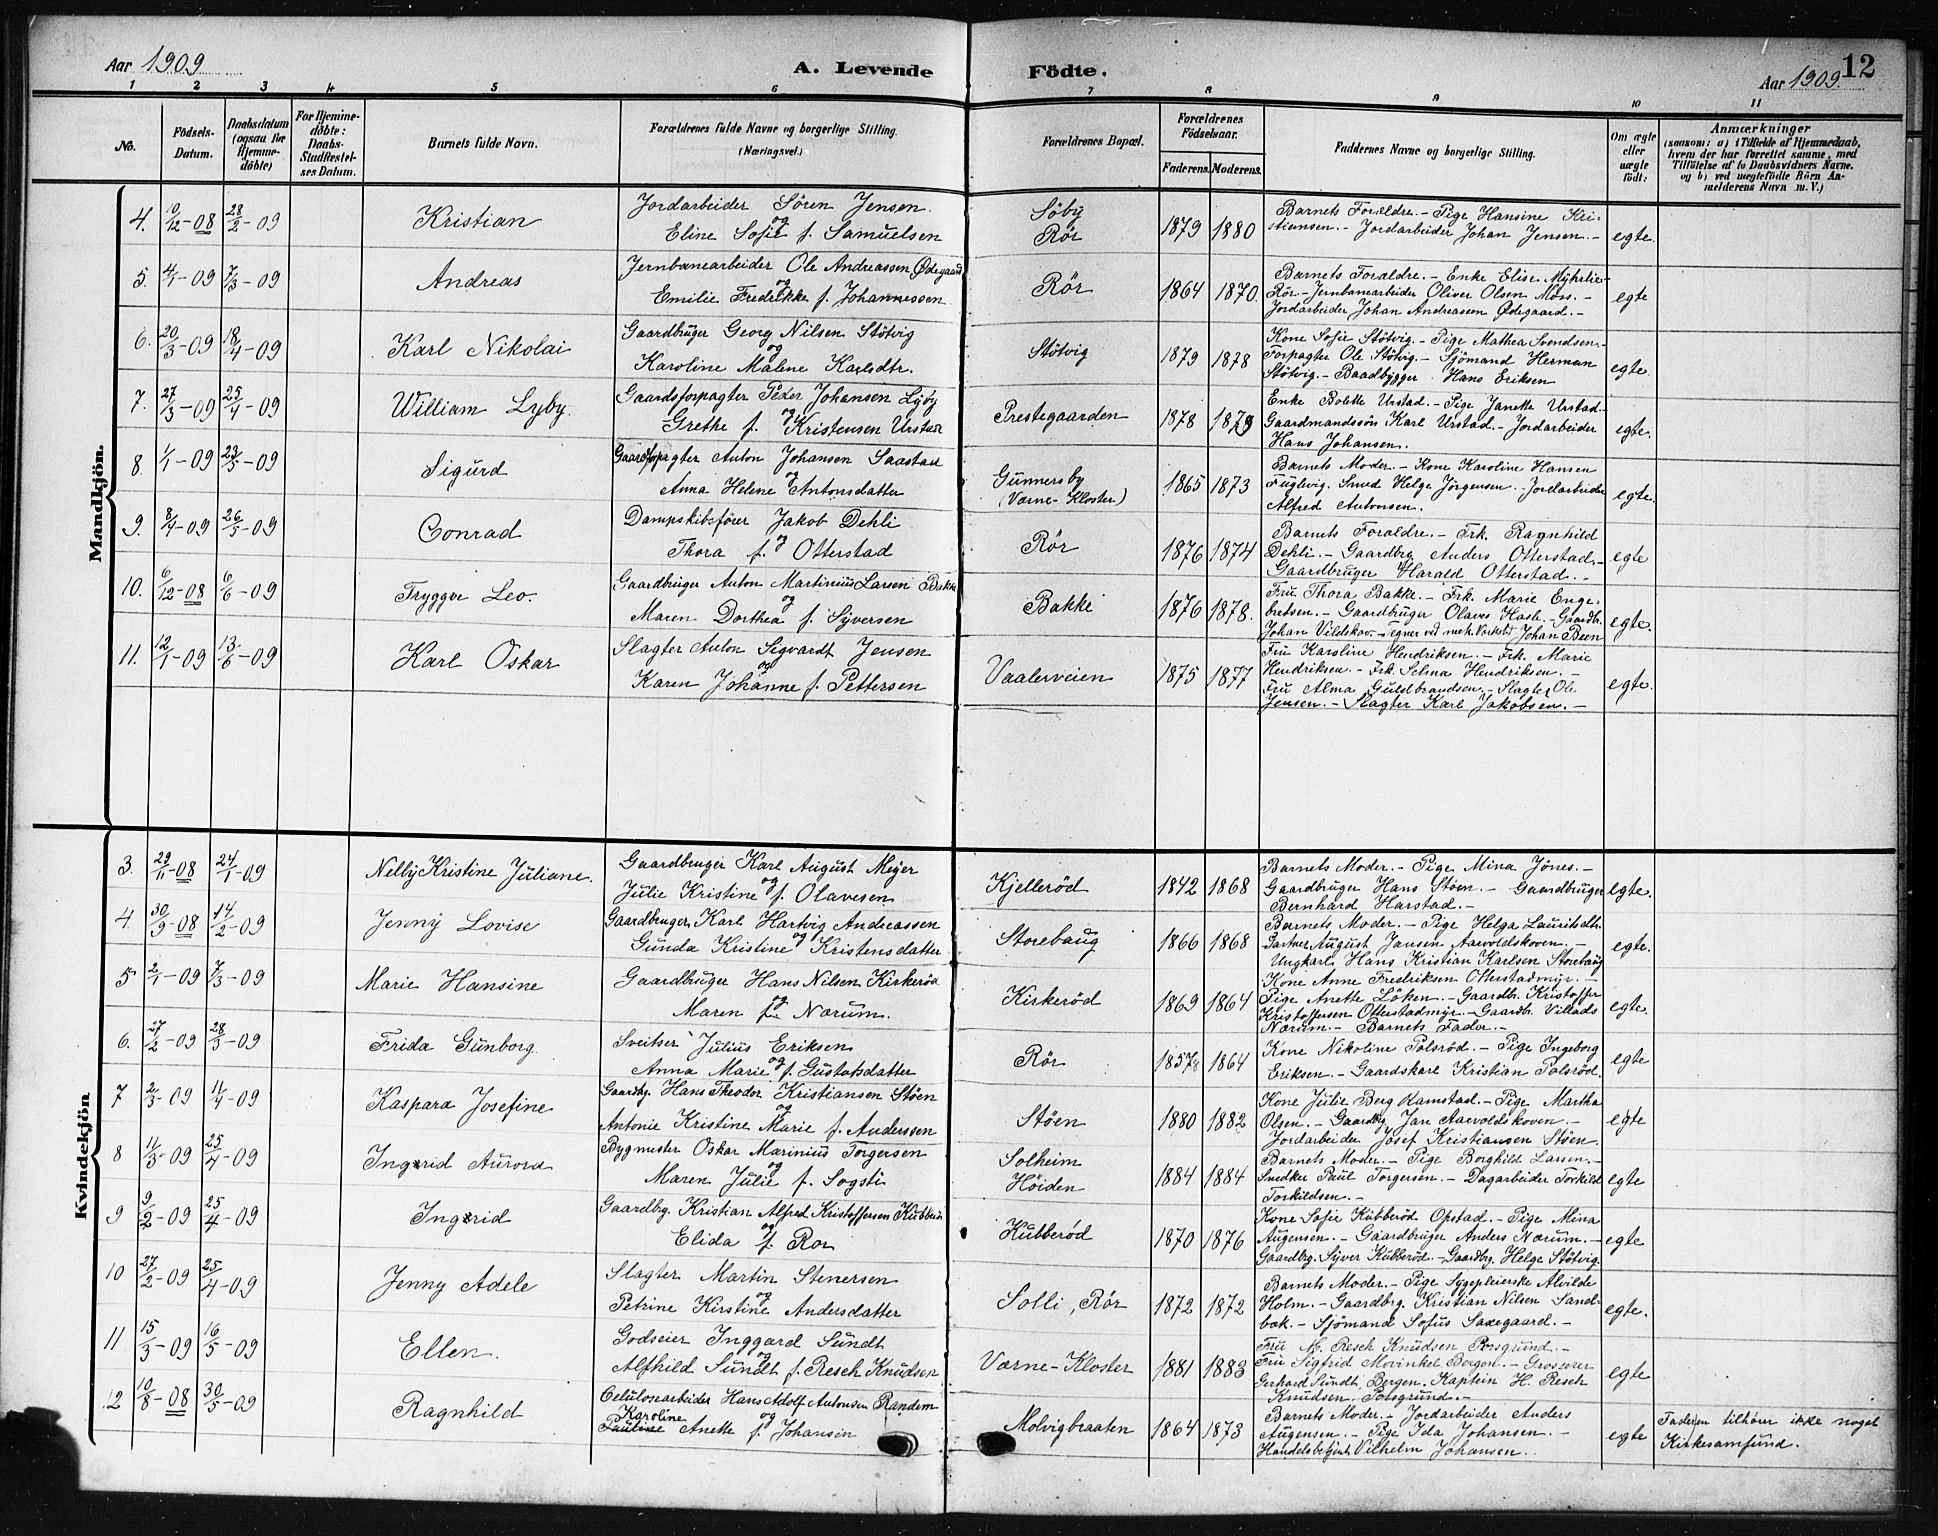 Aar 1909
A. Levende Födte.
Aar 1909.
12
1 2 3 4 5 6 7 8 9 10 11
No.
Födsels-Datum.
Daabsdatum (ogsaa for Hjemme-döbte)
For Hjemme-döbte: Daabs-Stadfæstel-ses Datum.
Barnets fulde Navn.
Forældrenes fulde Navne og borgerlige Stilling. (Næringsvei.)
Forældrenes Bopæl.
Forældrenes Födselsaar.
Faderens. Moderens.
Faddernes Navne og borgerlige Stilling.
Om ægte eller uægte födt:
Anmærkninger
(saasom: a) i Tilfælde af Hjemmedaab, hvem der har forrettet samme, med Tilföielse af to Daabsvidners Navne. og b) ved uægtefödte Börn An-melderens Navn m. V.)
Mandkjön.
4. 10/12-08 28/2-09 Kristian
Jordarbeider Sören Jensen
og
Eline Sofie f. Samuelsen
Söby
Rör
1879 1880
Barnets Forældre.- Pige Hansine Kri-
stiansen.- Jordarbeider Johan Jensen.-
egte.
5. 4/1-09 7/3-09 Andreas
Jernbanearbeider Ole Andreassen Ødegaard
og
Emilie Fredrikke f. Johannessen
Rör
1864 1870.
Barnets Forældre.- Enke Elise Myhrlie-
Rör- Jernbanearbeider Oliver Olsen Moss.-
Jordarbeider Johan Andreassen Ødegaard.-
egte
6. 20/3-09 18/4-09 Karl Nikolai
Gaardbruger Georg Nilsen Stötvig
og
Karoline Malene Karlsdtr.
Stötvig
1879 1878
Kone Sofie Stötvig.- Pige Mathea Svendsen.-
Forpagter Ole Stötvig.- Sjömand Herman
Stötvig.- Baadbygger Hans Eriksen
egte.
7. 27/3-09 25/4-09 William Lyby.
Gaardsforpagter Peder Johansen Lyby
og
Grethe f. Kristensen Urstad
Prestegaarden
1878 1879
Enke Bolette Urstad.- Pige Janette Urstad.-
Gaardmandssön Karl Urstad.- Jordarbeider
Hans Johansen.
egte.
8. 1/1-09 23/5-09 Sigurd
Gaardforpagter Anton Johansen Saastad
og
Anna Helene Antonsdatter
Gunnersby
(Værne-Kloster)
1865 1873
Barnets Moder.- Kone Karoline Hansen
Fuglevig. Smed Helge Jörgensen. Jordarbeider
Alfred Antonsen.
egte.
9. 8/4-09 26/5-09 Conrad
Dampskibsförer Jakob Dehli
og
Thora f. Otterstad
Rör
1876 1874
Barnets Forældre.- Frk. Ragnhild
Dehli.- Gaardbrg Anders Otterstad.-
Gaardbruger Harald Otterstad.-
egte
10. 6/12-08 6/6-09 Tryggve Leo.
Gaardbruger Anton Martinius Larsen Bakke
og
Maren Dorthea f. Syversen
Bakke
1876 1878.
Fru Thora Bakke.- Frk. Marie Enge-
bretsen.- Gaardbruger Olaves Hasle.- Gaardb.
Johan Vildskov.- Tegner ved mek. Verksted Johan Been
egte.
11. 12/1-09 13/6-09 Karl Oskar
Slagter Anton Sigvardt Jensen
og
Karen Johanne f. Pettersen
Vaalerveien
1875 1877
Fru Karoline Hendriksen.- Frk. Marie
Hendriksen.- Frk. Selma Hendriksen.-
Fru Alma Guldbrandsen.- Slagter Ole
Jensen.- Slagter Karl Jakobsen.-
egte.
Kvindekjön
3. 29/11-08 24/1-09 Nelly Kristine Juliane.
Gaardbruger Karl August Meyer
og
Julie Kristine f. Olavesen
Kjelleröd
1842 1868
Barnets Moder.- Pige Mina Jönes.-
Gaardbruger Hans Stöen.- Gaardbruger
Bernhard Harstad.-
egte.
4 30/9-08 14/2-09 Jenny Lovise
Gaardbruger Karl Hartvig Andreassen
og
Gunda Kristine Kristensdatter
Storebaug
1866 1868
Barnets Moder.- Pige Helga Lauritsdtr.
Gartner August Jansen Aarvoldskoven.-
Ungkarl Hans Kristian Karlsen Storebaug
egte.
5 2/1-09 7/3-09 Marie Hansine
Gaardbruger Hans Nilsen Kirkeröd
og
Maren f. Nærum.
Kirkeröd
1869 1864
Kone Anne Fredriksen Otterstadmyr.-
Pige Anette Löken.- Gaardb. Kristoffer
Kristoffersen Otterstadmyr.- Gaardb. Villads
Nærum.- Barnets Fader.-
egte.
6. 27/2-09 28/3-09 Frida Gunborg.
Sveitser Julius Eriksen
og
Anna Marie f. Gustafsdatter
Rör
1857 1864
Kone Nikoline Polsröd.- Pige Ingeborg
Eriksen.- Gaardskarl Kristian Polsröd.
egte
7 2/3-09 11/4-09 Kaspara Josefine
Gaardbg. Hans Theodor Kristiansen Stöen
og
Antonie Kristine Marie f. Anderssen
Stöen
1880 1882
Kone Julie Berg Ramstad.- Pige Martha
Olsen.- Gaardbg Jan Aarvoldskoven.-
Jordarbeider Josef Kristiansen Stöen.
egte
8 11/3-09 25/4-09 Ingrid Aurora
Bygmester Oskar Marinius Torgersen
og
Maren Julie f. Sogsti
Solheim
Höiden
1884 1884
Barnets Moder.- Pige Borghild Larsen.-
Snedker Paul Torgersen.- Dagarbeider Torkild
Torkildsen.-
egte
9 9/2-09 25/4-09 Ingrid
Gaardbrg. Kristian Alfred Kristoffersen Kubberöd
og
Elida f. Rör
Kubberöd
1870 1876
Kone Sofie Kubberöd Opstad.- Pige Mina
Augensen.- Gaardbruger Anders Nærum.-
Gaardbrg. Syver Kubberöd.- Gaardbrg. Helge Stötvig.
egte
10 27/2-09 25/4-09 Jenny Adele
Slagter Martin Stenersen
og
Petrine Kirstine Andersdatter
Solli, Rör
1872 1872
Barnets Moder.- Pige Sygepleierske Alvilde
Holm.- Gaardbrg. Kristian Nilsen Sand-
bæk.- Sjömand Sofus Saxegaard.-
egte.
11 15/3-09 16/5-09 Ellen.
Godseier Inggard Sundt
og
Alfhild Sundt f. Resch Knudsen
Værne-Kloster
1881 1883
Fru M. Resch Knudsen Porsgrund.-
Fru Sigfrid Movinkel Bergen.- Grosserer
Gerhard Sundt, Bergen. Kaptein H. Resch
Knudsen, Porsgrund.-
egte
12 10/8-08 30/5-09 Ragnhild
Celulosearbeider Hans Adolf Antonsen Random
Karoline og
Pauline Anette f. Johansen
Molvigbraaten
1864 1873
Barnets Moder.- Jordarbeider Anders
Augensen.- Pige Ida Johansen.-
Handelsbetjent Vilhelm Johansen.
egte
Faderen tilhörer ikke noget
Kirkesamfund.